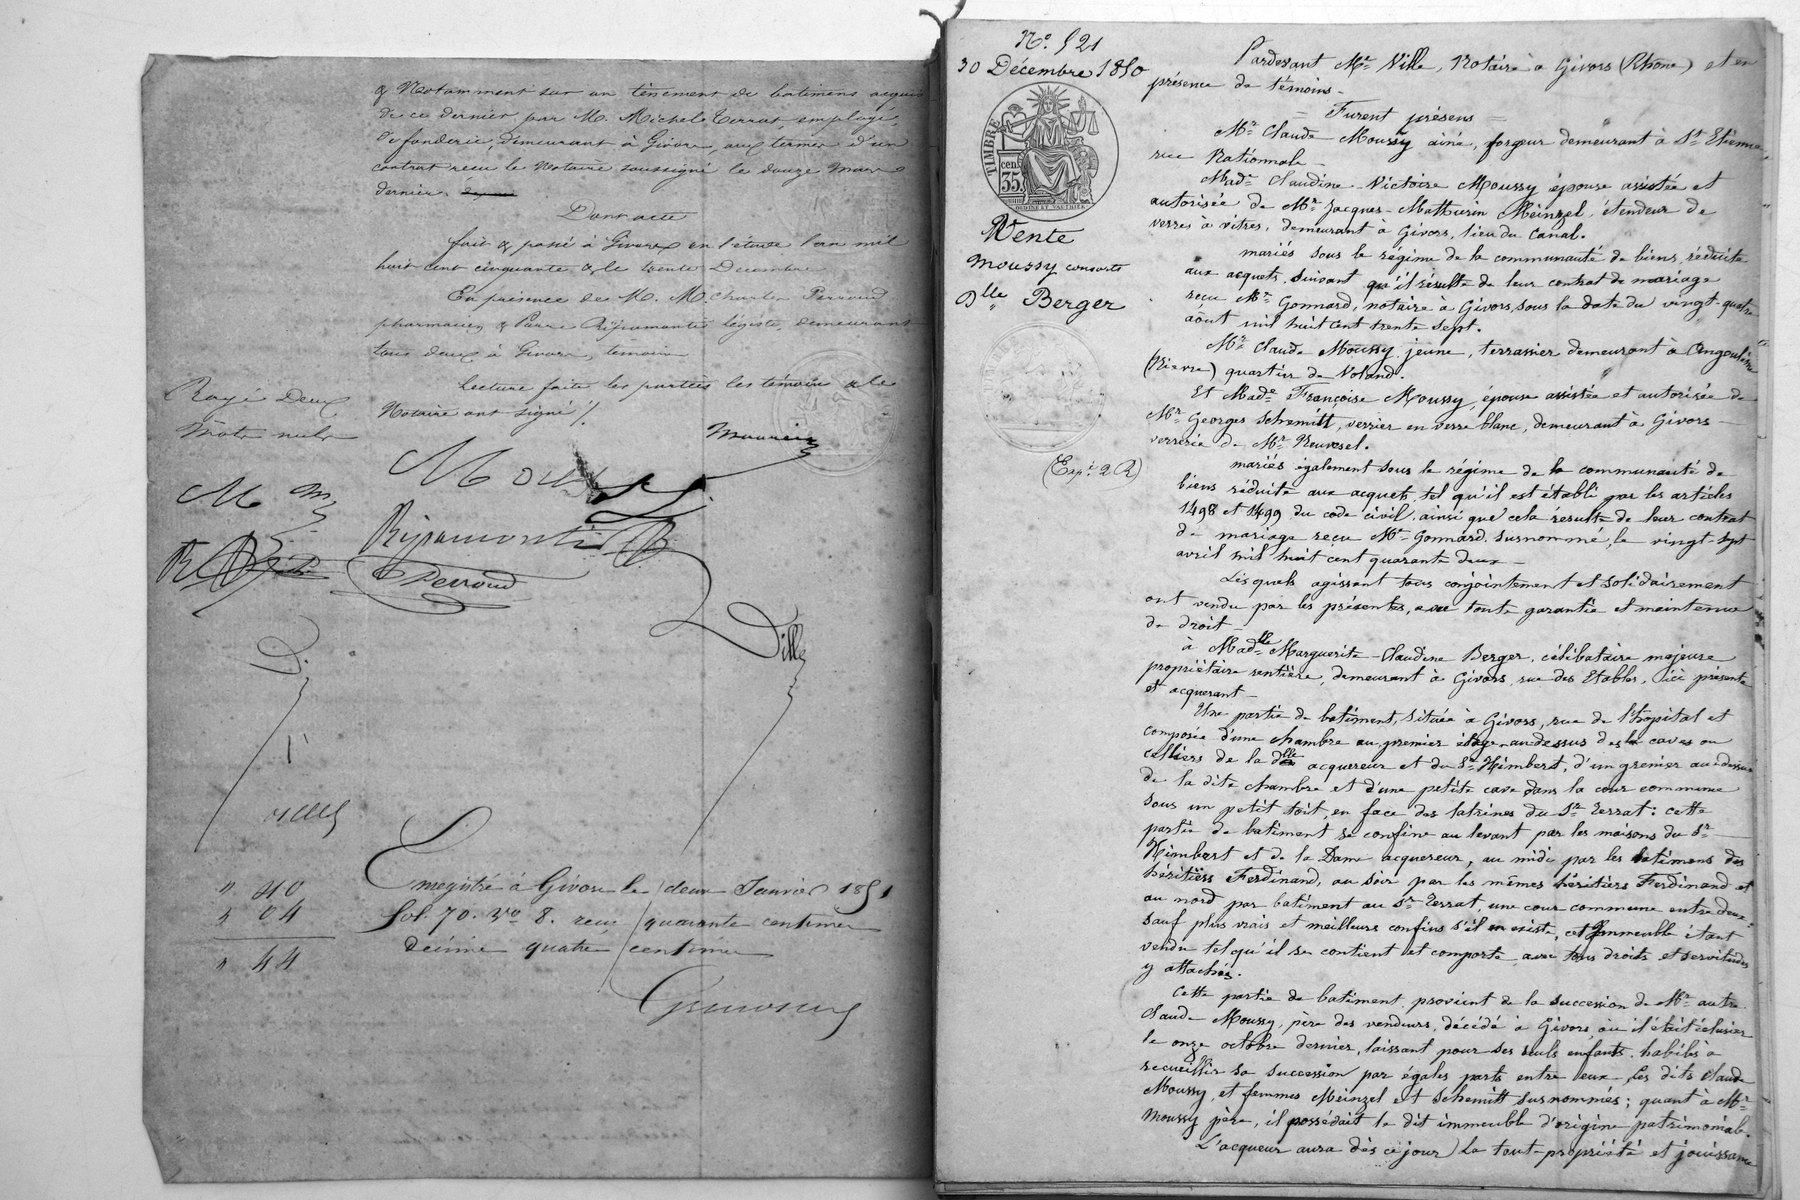 & Notamment sur un tènement de batimens acquis
de ce dernier, par M. Michel Terrat, employé,
de fonderie, demeurant à Givors, aux termes d'un
contrat reçu le Notaire soussigné le douze Mars
dernier.
Dont acte
fait & passé à Givors en l'étude l'an mil
huit cent cinquante & le trente Décembre
En présence de M. M. Charles Perroud
pharmacien & Pierre Ripamonti légiste, demeurant
tous deux à Givors, témoins
Lecture faite les parties les témoins & le
Notaire ont signé ./.
Rayé Deux
mots nuls
Moussy
M
Ripamonti
Perroud
Ville
Enregistré à Givors le deux Janvier 1851
fol. 70. Vo 8. reçu quarante centimes
décime quatre centimes
" 40
" 04
" 44
No. 521
30 Décembre 1850
TIMBRE
35 cent
Vente
Moussy consorts
à
Dlle Berger
(Exp. 2 R)
Pardevant Me Ville, Notaire à Givors (Rhône) et en
présence de témoins.
= Furent présens =
Mr Claude Moussy ainé, forgeur demeurant à St Etienne,
rue Nationnale
Made Claudine-Victoire Moussy épouse assistée et
autorisée de Mr Jacques-Mathurin Meinzel, étendeur de
verres à vitres, demeurant à Givors, lieu du Canal.
mariés sous le régime de la communauté de biens réduite
aux acquets, suivant qu'il résulte de leur contrat de mariage
reçu Me Gonnard, notaire à Givors, sous la date du vingt-quatre
août mil huit cent trente sept.
Mr Claude Moussy jeune, terrassier demeurant à
(Nièvre) quartier de Noland.
Et Made Françoise Moussy épouse assistée et autorisée de
Mr Georges Schemitt, verrier en verre blanc, demeurant à Givors
verrerie de Mr Neuvesel.
mariés également sous le régime de la communauté de
biens réduite aux acquets, tel qu'il est établi par les articles
1498 et 1499 du code civil, ainsi que cela résulte de leur contrat
de mariage reçu Me Gonnard susnommé, le vingt-sept
avril mil huit cent quarante deux
Lesquels agissant tous conjointement et solidairement
ont vendu par les présentes, avec toute garantie et maintenue
de droit
à Madlle Marguerite-Claudine Berger, célibataire majeure
propriétaire rentière, demeurant à Givors, rue des Etables, ici présente
et acquerant
Une partie de batiment, située à Givors, rue de l'hopital et
composée d'une chambre au premier étage au dessus des caves ou
celliers de la dlle acquereur et du Sr Himbert, d'un grenier au dessus
de la dite chambre et d'une petite cave dans la cour commune
sous un petit toit, en face des latrines du Sr Terrat: cette
partie de batiment se confine au levant par les maisons du Sr
Himbert et de la Dame acquereur, au midi par les batimens des
héritiers Ferdinand, au soir par les mêmes héritiers Ferdinand et
au nord par batiment au Sr Terrat, une cour commune entre deux
sauf plus vrais et meilleurs confins s'il en existe, cet Immeuble étant
vendu tel qu'il se contient et comporte avec tous droits et servitudes
y attachés.
Cette partie de batiment provient de la succession de Mr autre
Claude Moussy, père des vendeurs, décédé à Givors, où il était éclusier
le onze octobre dernier, laissant pour ses seuls enfants habiles à
recueillir sa succession par égales parts entre eux, les dits Claude
Moussy, et femmes Meinzel et Schemitt susnommés; quant à Mr
Moussy père, il possédait le dit immeuble d'origine patrimoniale.
L'acqueur aura dès ce jour la tout-propriété et jouissance